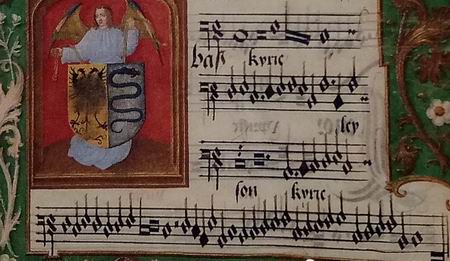 baß kyrie
ley
son kyrie